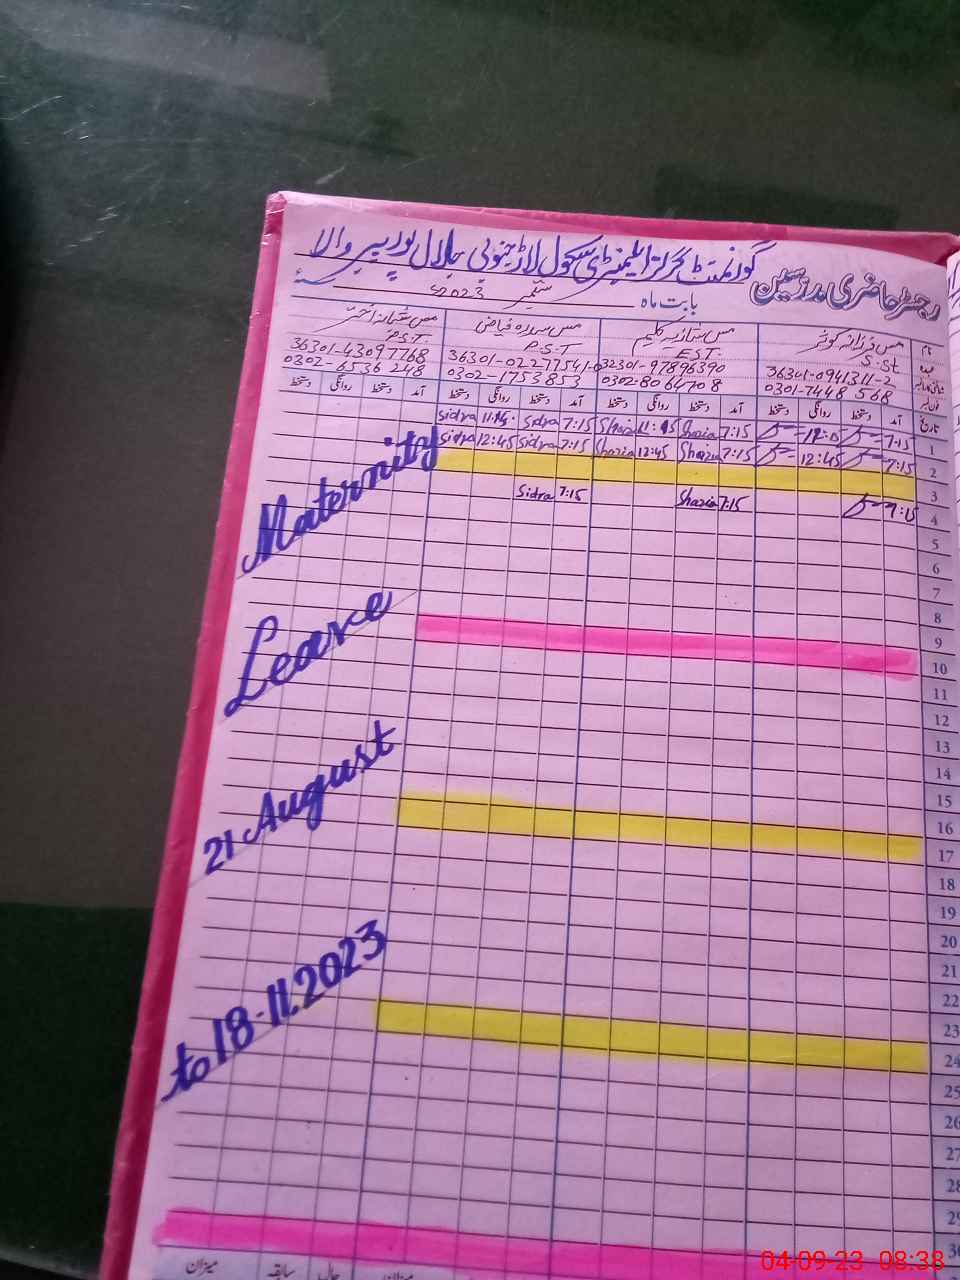 گورنمنٹ گرلز ایلیمنٹری سکول لاڑ جنوبی جلال پور پیر والا
رجسٹر حاضری مدرسین
بابت ماہ ستمبر 2023ء
نام مس فرزانہ کوثر مس شازیہ کلیم مس سدرہ فیاض مس شبانہ اختر
عہدہ S.St E.S.T. P.S.T P.S.T.
36301-0941311-2 32301-97896390 36301-02277541-0 36301-43097768
0301-7448568 0302-8064708 0302-1753853 0302-6536248
تاریخ آمد دستخط روانگی دستخط آمد دستخط روانگی دستخط آمد دستخط روانگی دستخط آمد دستخط روانگی دستخط
1 7:15 7:15 Shazia 11:45 Shazia 7:15 Sidra Sidra
2 7:15 12:45 7:15 Shazia 12:45 Shazia 7:15 Sidra 12:45 Sidra
3
4 7:15 7:15 Shazia 7:15 Sidra
5
6
7
8
9
10
11
12
13
14
15
16
17
18
19
20
21
22
23
24
25
26
27
28
29
30
Maternity
Leave
21 August
to 18.11.2023
میزان سابقہ حال میزان
04-09-23 08:38